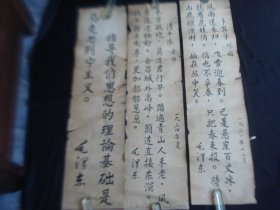 卜算子 咏梅
风雨送春归，飞雪迎春到。已是悬崖百丈冰，
犹有花枝俏。俏也不争春，只把春来报。待
山花烂漫时，她在丛中笑。
毛泽东
清平乐
方欲晓，莫道君行早。踏遍青山人未老，风
景这边独好。会昌城外高峰，颠连直接东溟。
更加郁郁葱葱。
一九三四年夏
毛泽东
指导我们思想的理论基础是
马克思列宁主义。
毛泽东